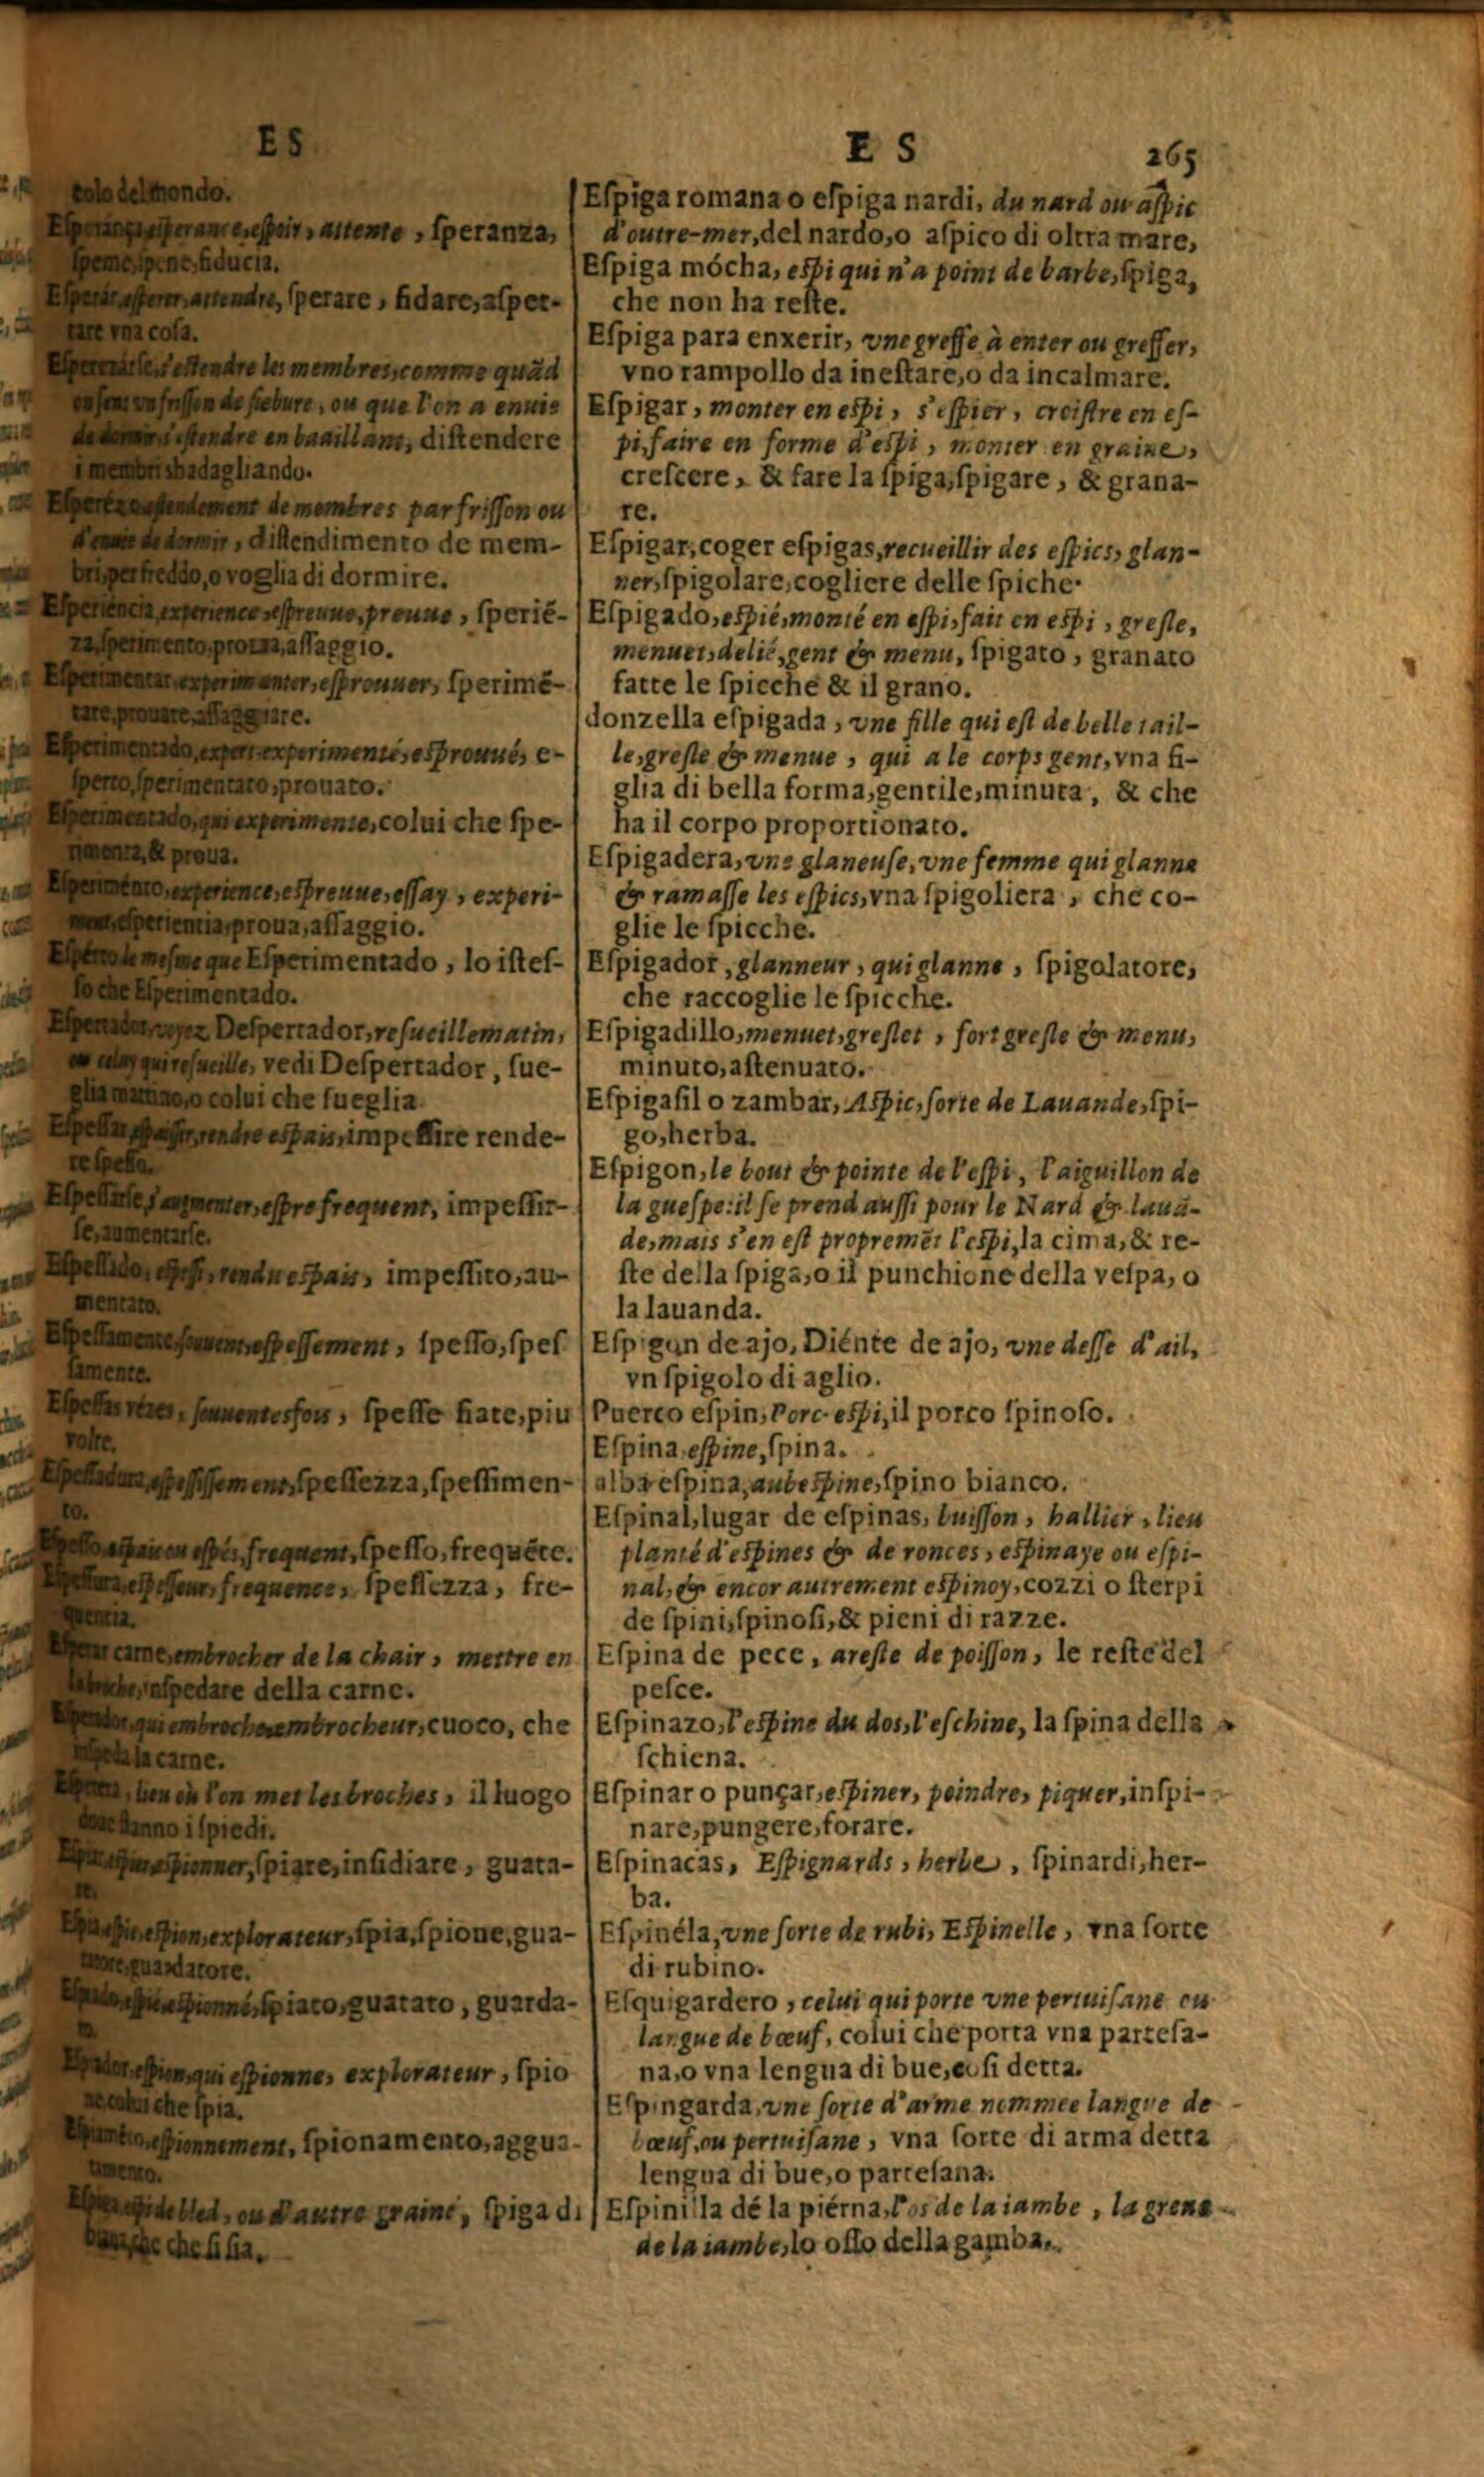 ES
tolo del mondo.
Eſperánça, eſperance, eſpoir, attente, ſperanza,
ſpeme, ſpene, fiducia.
Eſperár, eſperer, attendre, ſperare, fidare, aſpet-
tare vna coſa.
Eſperezárſe, s'eſtendre les membres, comme quãd
on ſent vn friſſon de fiebure, ou que l'on a enuie
de dormir, s'eſtendre en baaillant, diſtendere
i membri sbadagliando.
Eſperézo, eſtendement de membres par friſſon ou
d'enuie de dormir, diſtendimento de mem-
bri, per freddo, o voglia di dormire.
Eſperiéncia, experience, eſpreuue, preuue, ſperiẽ-
za, ſperimento, proua, aſſaggio.
Eſperimentar, experimenter, eſprouuer, ſperimẽ-
tare, prouare, aſſaggiare.
Eſperimentado, expert, experimenté, eſprouué, e-
ſperto, ſperimentato, prouato.
Eſperimentado, qui experimente, colui che ſpe-
rimenta, & proua.
Eſperiménto, experience, eſpreuue, eſſay, experi-
ment, eſperientia, proua, aſſaggio.
Eſpérto le meſme que Eſperimentado, lo iſteſ-
ſo che Eſperimentado.
Eſpertador, voyez Deſpertador, reſueillematin,
ou celuy qui reſueille, vedi Deſpertador, ſue-
glia mattino, o colui che ſueglia.
Eſpeſſar, eſpaiſſir, rendre eſpais, impeſſire rende-
re ſpeſſo.
Eſpeſſarſe, s'augmenter, eſtre frequent, impeſſir-
ſe, aumentarſe.
Eſpeſſado, rendu eſpais, impeſſito, au-
mentato.
Eſpeſſamente, ſouuent, eſpeſſement, ſpeſſo, ſpeſ
ſamente.
Eſpeſſas vézes, ſouuentesfois, ſpeſſe fiate, piu
volte.
Eſpeſſadura, eſpeſſiſſement, ſpeſſezza, ſpeſſimen-
to.
Eſpeſſo, eſpais ou eſpés, frequent, ſpeſſo, frequẽte.
Eſpeſſura, eſpeſſeur, frequence, ſpeſſezza, fre-
quentia.
Eſpetar carne, embrocher de la chair, mettre en
la broche, inſpedare della carne.
Eſpetador, qui embroche, embrocheur, cuoco, che
inſpeda la carne.
Eſpetera, lieu où l'on met les broches, il luogo
doue ſtanno i ſpiedi.
Eſpiar, eſpier, eſpionner, ſpiare, inſidiare, guata-
re.
Eſpia, eſpie, eſpion, explorateur, ſpia, ſpione, gua-
tatore, guardatore.
Eſpiado, eſpié, eſpionné, ſpiato, guatato, guarda-
to.
Eſpiador, eſpion, qui eſpionne, explorateur, ſpio
ne colui che ſpia.
Eſpiamiento, eſpionnement, ſpionamento, aggua-
tamento.
Eſpiga, eſpi de bled, ou d'autre graine, ſpiga di
che ſi ſia.
E S 265
Eſpiga romana o eſpiga nardi, du nard ou aſpic
d'outre-mer, del nardo, o aſpico di oltra mare,
Eſpiga mócha, eſpi qui n'a point de barbe, ſpiga,
che non ha reſte.
Eſpiga para enxerir, vne greffe à enter ou greffer,
vno rampollo da ineſtare, o da incalmare.
Eſpigar, monter en eſpi, s'eſpier, croiſtre en eſ-
pi, faire en forme d'eſpi, monter en graine,
creſcere, & fare la ſpiga, ſpigare, & grana-
re.
Eſpigar, coger eſpigas, recueillir des eſpics, glan-
ner, ſpigolare, cogliere delle ſpiche.
Eſpigado, eſpié, monté en eſpi, fait en eſpi, greſle,
menuet, delié, gent & menu, ſpigato, granato
fatte le ſpicche & il grano.
donzella eſpigada, vne fille qui eſt de belle tail-
le, greſle & menue, qui a le corps gent, vna fi-
glia di bella forma, gentile, minuta, & che
ha il corpo proportionato.
Eſpigadera, vne glaneuſe, vne femme qui glanne
& ramaſſe les eſpics, vna ſpigoliera, che co-
glie le ſpicche.
Eſpigador, glanneur, qui glanne, ſpigolatore,
che raccoglie le ſpicche.
Eſpigadillo, menuet, greſlet, fort greſle & menu,
minuto, aſtenuato.
Eſpigaſil o zambar, Aſpic, ſorte de Lauande, ſpi-
go, herba.
Eſpigon, le bout & pointe de l'eſpi, l'aiguillon de
la gueſpe: il ſe prend auſſi pour le Nard & lauã-
de, mais s'en eſt propremẽt l'eſpi, la cima, & re-
ſte della ſpiga, o il punchione della veſpa, o
la lauanda.
Eſpigon de ajo, Diénte de ajo, vne deſſe d'ail,
vn ſpigolo di aglio.
Puerco eſpin, Porc-eſpi, il porco ſpinoſo.
Eſpina, eſpine, ſpina.
alba eſpina, aubeſpine, ſpino bianco.
Eſpinal, lugar de eſpinas, buiſſon, hallier, lieu
planté d'eſpines & de ronces, eſpinaye ou eſpi-
nal, & encor autrement eſpinoy, cozzi o ſterpi
de ſpini, ſpinoſi, & pieni di razze.
Eſpina de pece, areſte de poiſſon, le reſte del
peſce.
Eſpinazo, l'eſpine du dos, l'eſchine, la ſpina della
ſchiena.
Eſpinar o punçar, eſpiner, poindre, piquer, inſpi-
nare, pungere, forare.
Eſpinacas, Eſpignards, herbe, ſpinardi, her-
ba.
Eſpinéla, vne ſorte de rubi, Eſpinelle, vna ſorte
di rubino.
Eſquigardero, celui qui porte vne pertuiſane ou
langue de bœuf, colui che porta vna parteſa-
na, o vna lengua di bue, coſi detta.
Eſpingarda, vne ſorte d'arme nommee langue de
bœuf, ou pertuiſane, vna ſorte di arma detta
lengua di bue, o parteſana.
Eſpinilla dé la piérna, l'os de la iambe, la greue
de la iambe, lo oſſo della gamba.